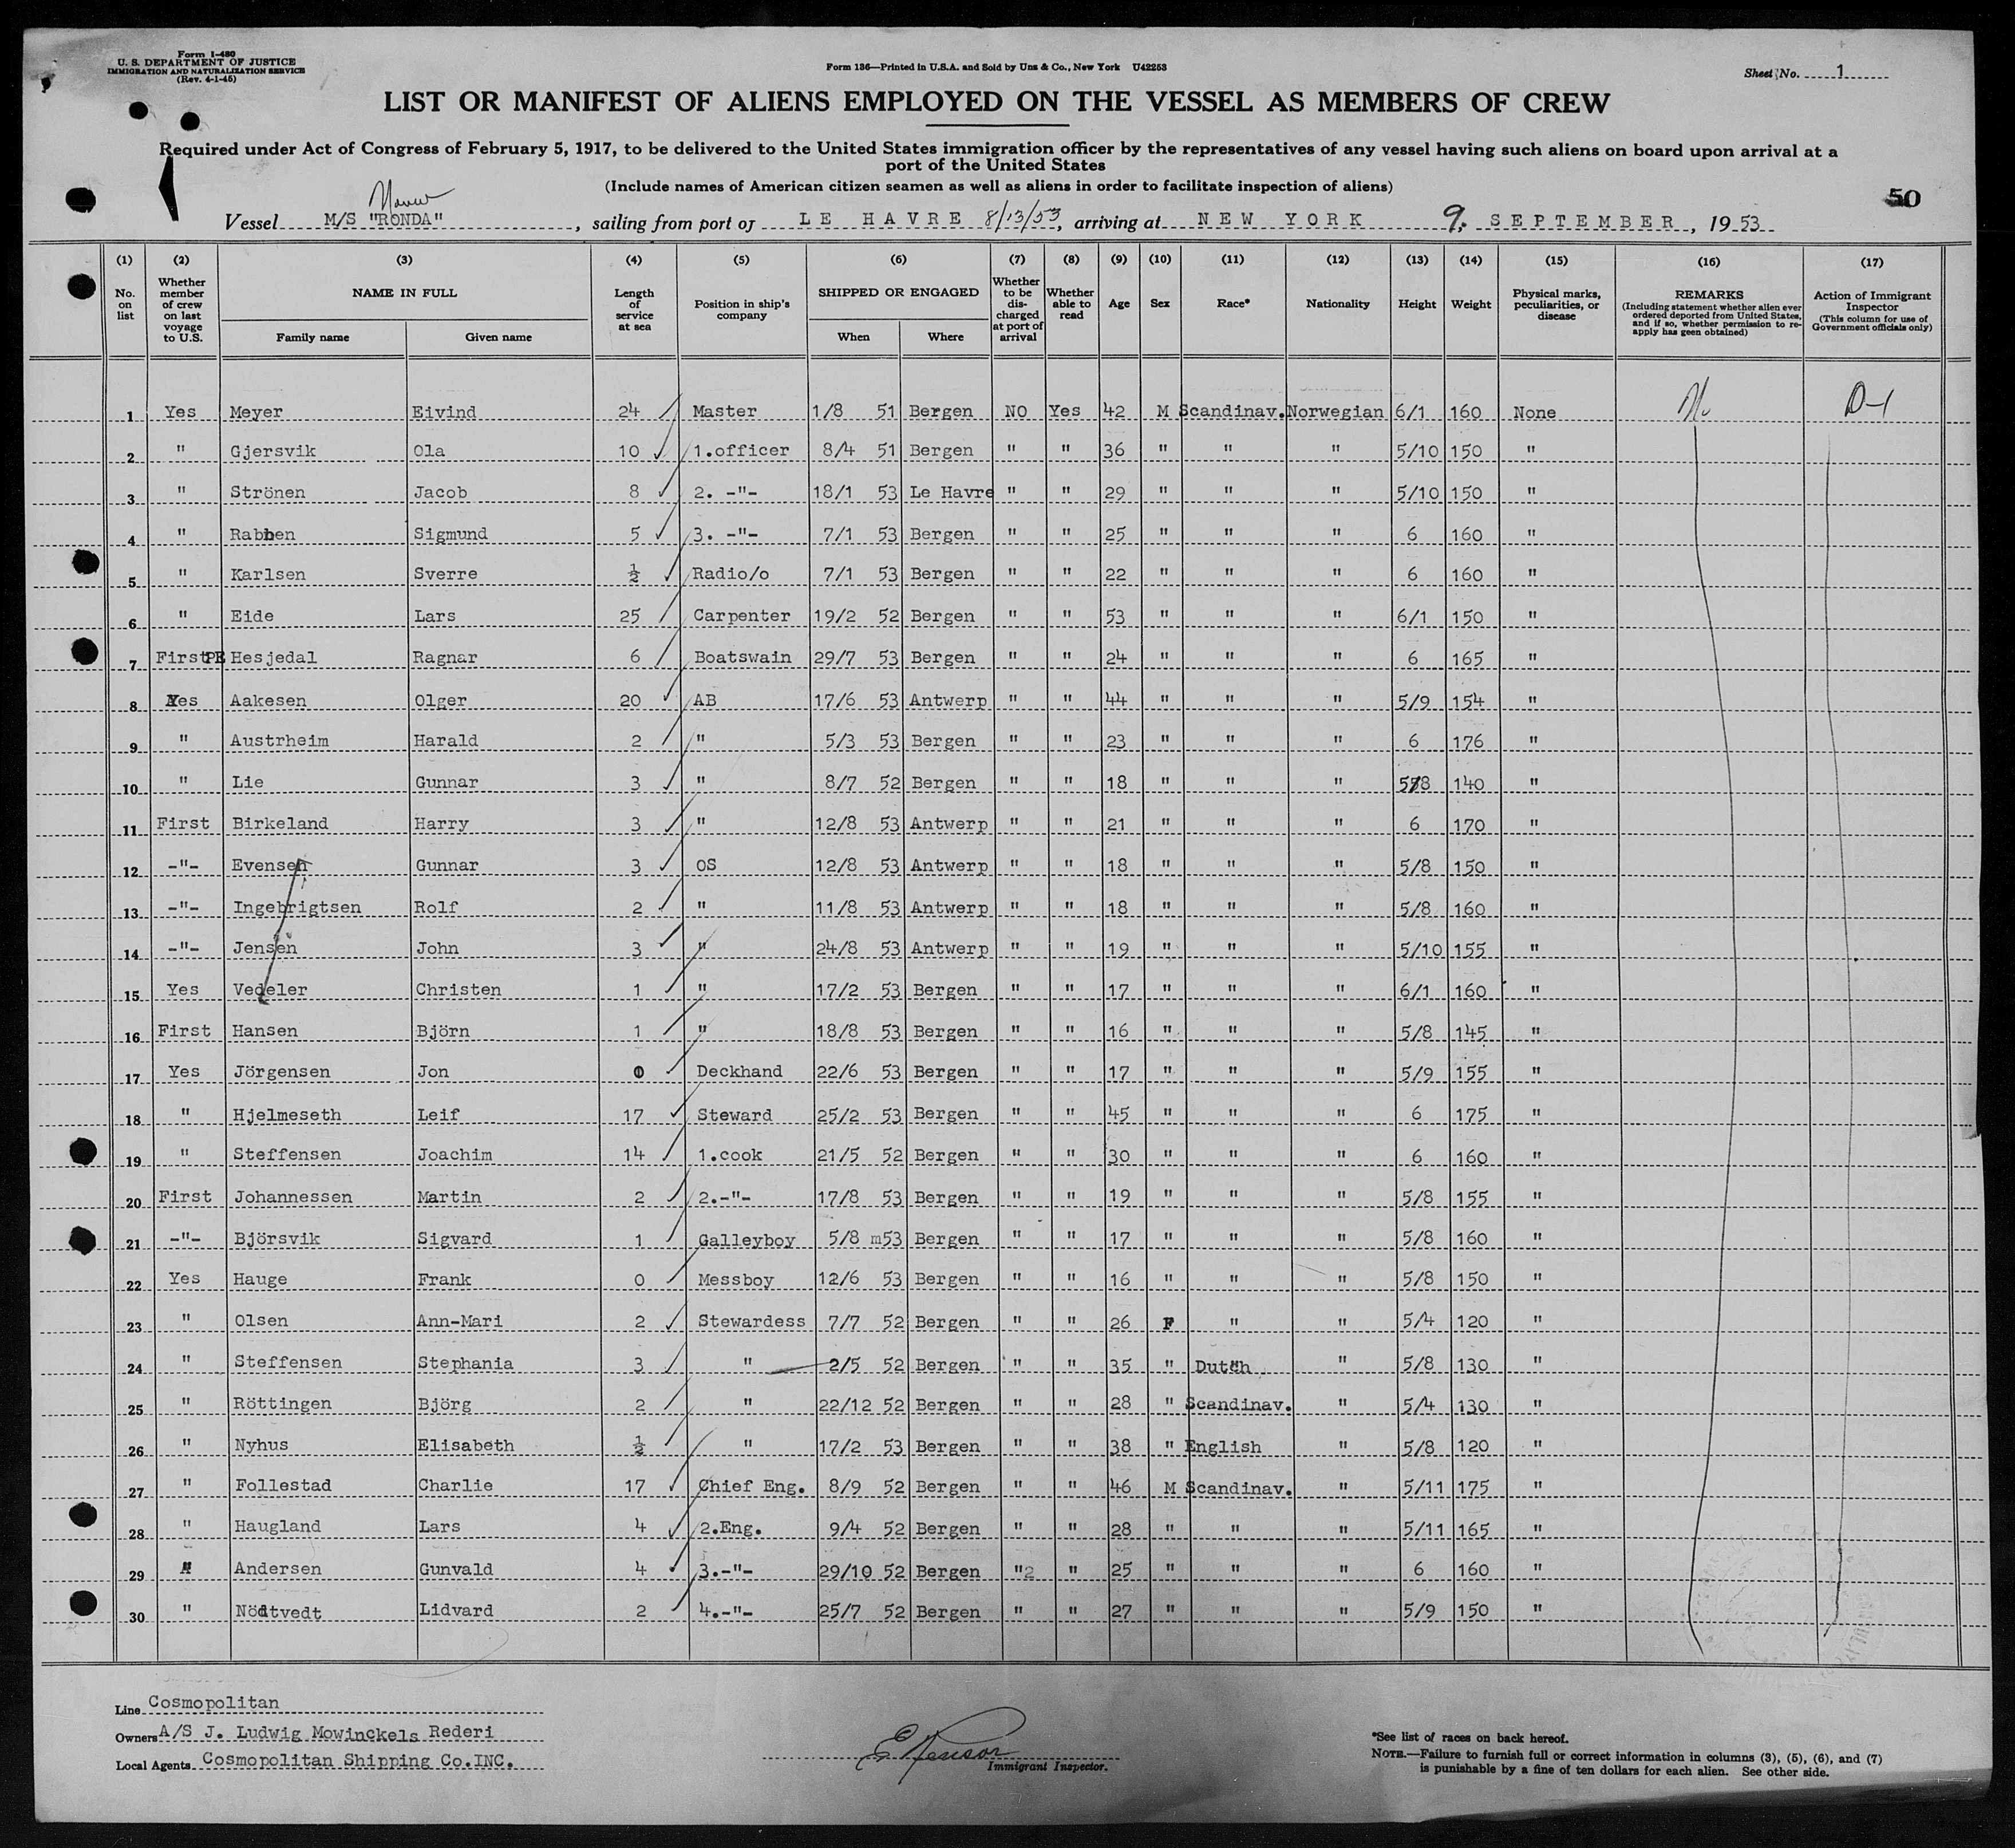 Form I-480
U. S. DEPARTMENT OF JUSTICE
IMMIGRATION AND NATURALIZATION SERVICE
(Rev. 4-1-45)
Form 136—Printed in U.S.A. and Sold by Unz & Co., New York U42253
Sheet No. 1
LIST OR MANIFEST OF ALIENS EMPLOYED ON THE VESSEL AS MEMBERS OF CREW
Required under Act of Congress of February 5, 1917, to be delivered to the United States immigration officer by the representatives of any vessel having such aliens on board upon arrival at a
port of the United States
(Include names of American citizen seamen as well as aliens in order to facilitate inspection of aliens)
50
Vessel M/S "RONDA", sailing from port of LE HAVRE 8/13/53, arriving at NEW YORK 9. SEPTEMBER, 1953
(1) (2) (3) (4) (5) (6) (7) (8) (9) (10) (11) (12) (13) (14) (15) (16) (17)
No. on list
Whether member of crew on last voyage to U.S.
NAME IN FULL
Family name
Given name
Length of service at sea
Position in ship's company
SHIPPED OR ENGAGED
When
Where
Whether to be discharged at port of arrival
Whether able to read
Age
Sex
Race*
Nationality
Height
Weight
Physical marks, peculiarities, or disease
REMARKS
(Including statement whether alien ever ordered deported from United States, and if so, whether permission to re-apply has geen obtained)
Action of Immigrant Inspector
(This column for use of Government officials only)
1 Yes Meyer Eivind 24 Master 1/8 51 Bergen NO Yes 42 M Scandinav. Norwegian 6/1 160 None No D-1
2 " Gjersvik Ola 10 1.officer 8/4 51 Bergen " " 36 " " " 5/10 150 "
3 " Strönen Jacob 8 2. -"- 18/1 53 Le Havre " " 29 " " " 5/10 150 "
4 " Rabben Sigmund 5 3. -"- 7/1 53 Bergen " " 25 " " " 6 160 "
5 " Karlsen Sverre ½ Radio/o 7/1 53 Bergen " " 22 " " " 6 160 "
6 " Eide Lars 25 Carpenter 19/2 52 Bergen " " 53 " " " 6/1 150 "
7 First PE Hesjedal Ragnar 6 Boatswain 29/7 53 Bergen " " 24 " " " 6 165 "
8 Yes Aakesen Olger 20 AB 17/6 53 Antwerp " " 44 " " " 5/9 154 "
9 " Austrheim Harald 2 " 5/3 53 Bergen " " 23 " " " 6 176 "
10 " Lie Gunnar 3 " 8/7 52 Bergen " " 18 " " " 5/8 140 "
11 First Birkeland Harry 3 " 12/8 53 Antwerp " " 21 " " " 6 170 "
12 -"- Evensen Gunnar 3 OS 12/8 53 Antwerp " " 18 " " " 5/8 150 "
13 -"- Ingebrigtsen Rolf 2 " 11/8 53 Antwerp " " 18 " " " 5/8 160 "
14 -"- Jensen John 3 " 24/8 53 Antwerp " " 19 " " " 5/10 155 "
15 Yes Vedeler Christen 1 " 17/2 53 Bergen " " 17 " " " 6/1 160 "
16 First Hansen Björn 1 " 18/8 53 Bergen " " 16 " " " 5/8 145 "
17 Yes Jörgensen Jon 0 Deckhand 22/6 53 Bergen " " 17 " " " 5/9 155 "
18 " Hjelmeseth Leif 17 Steward 25/2 53 Bergen " " 45 " " " 6 175 "
19 " Steffensen Joachim 14 1.cook 21/5 52 Bergen " " 30 " " " 6 160 "
20 First Johannessen Martin 2 2.-"- 17/8 53 Bergen " " 19 " " " 5/8 155 "
21 -"- Björsvik Sigvard 1 Galleyboy 5/8 m53 Bergen " " 17 " " " 5/8 160 "
22 Yes Hauge Frank 0 Messboy 12/6 53 Bergen " " 16 " " " 5/8 150 "
23 " Olsen Ann-Mari 2 Stewardess 7/7 52 Bergen " " 26 F " " 5/4 120 "
24 " Steffensen Stephania 3 " 2/5 52 Bergen " " 35 " Dutch " 5/8 130 "
25 " Röttingen Björg 2 " 22/12 52 Bergen " " 28 " Scandinav. " 5/4 130 "
26 " Nyhus Elisabeth ½ " 17/2 53 Bergen " " 38 " English " 5/8 120 "
27 " Follestad Charlie 17 Chief Eng. 8/9 52 Bergen " " 46 M Scandinav. " 5/11 175 "
28 " Haugland Lars 4 2.Eng. 9/4 52 Bergen " " 28 " " " 5/11 165 "
29 " Andersen Gunvald 4 3.-"- 29/10 52 Bergen "2 " 25 " " " 6 160 "
30 " Nödtvedt Lidvard 2 4.-"- 25/7 52 Bergen " " 27 " " " 5/9 150 "
Line Cosmopolitan
Owners A/S J. Ludwig Mowinckels Rederi
Local Agents Cosmopolitan Shipping Co.INC.
Immigrant Inspector.
*See list of races on back hereof.
NOTE.—Failure to furnish full or correct information in columns (3), (5), (6), and (7)
is punishable by a fine of ten dollars for each alien. See other side.